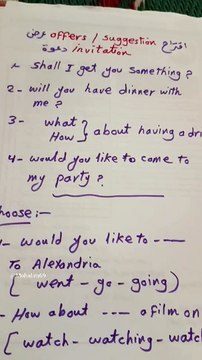 عرض offers / suggestion اقتراح
دعوة invitation
1- Shall I get you something?
2- will you have dinner with
me?
3- what
How } about having a
4- would you like to come to
my party?
hoose:-
- would you like to ----
To Alexandria
[ went - go - going )
- How about ---- a film on
[ watch - watching -